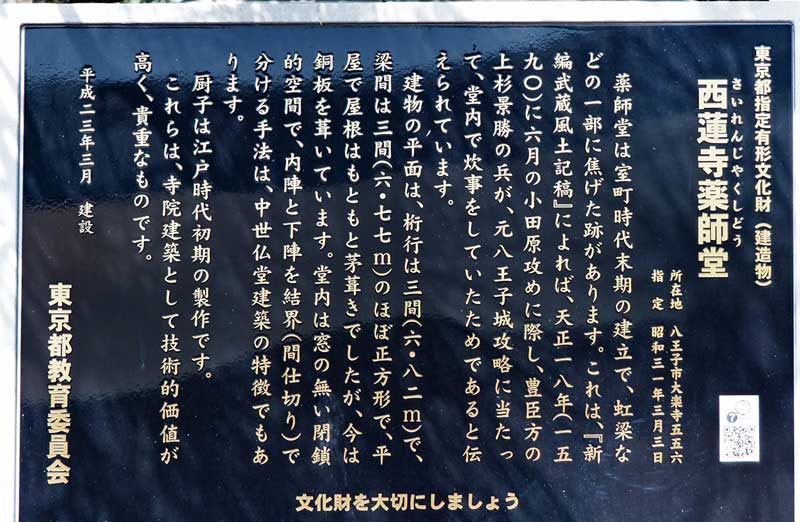 東京都指定有形文化財（建造物）
さいれんじやくしどう
西蓮寺薬師堂
所在地　八王子市大楽寺五五六
指　定　昭和三一年三月三日
薬師堂は室町時代末期の建立で、虹梁な
どの一部に焦げた跡があります。これは、『新
編武蔵風土記稿』によれば、天正一八年（一五
九〇）に六月の小田原攻めに際し、豊臣方の
上杉景勝の兵が、元八王子城攻略に当たっ
て、堂内で炊事をしていたためであると伝
えられています。
建物の平面は、桁行は三間（六・八二ｍ）で、
梁間は三間（六・七七ｍ）のほぼ正方形で、平
屋で屋根はもともと茅葺きでしたが、今は
銅板を葺いています。堂内は窓の無い閉鎖
的空間で、内陣と下陣を結界（間仕切り）で
分ける手法は、中世仏堂建築の特徴でもあ
ります。
厨子は江戸時代初期の製作です。
これらは、寺院建築として技術的価値が
高く、貴重なものです。
平成二三年三月　建設
東京都教育委員会
文化財を大切にしましょう